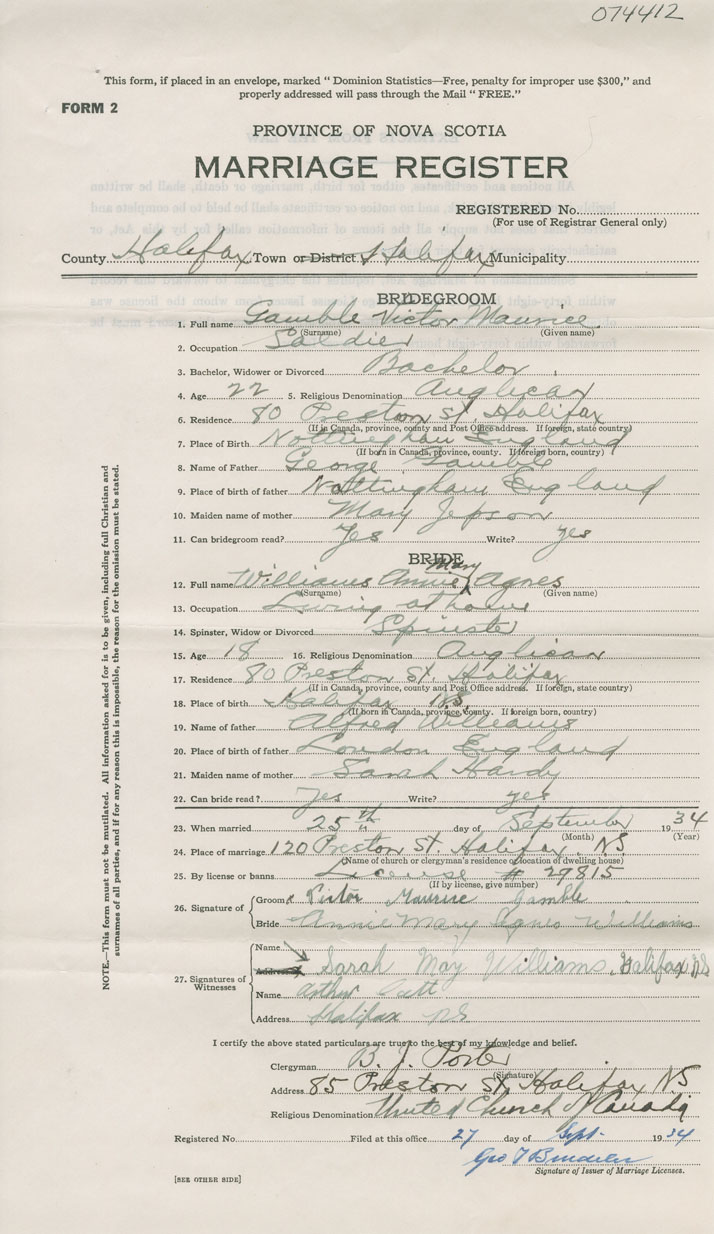 074412
This form, if placed in an envelope, marked " Dominion Statistics—Free, penalty for improper use $300," and
properly addressed will pass through the Mail " FREE."
FORM 2
PROVINCE OF NOVA SCOTIA
MARRIAGE REGISTER
REGISTERED No.
(For use of Registrar General only)
County Halifax Town or District Halifax Municipality
BRIDEGROOM
1. Full name Gamble Victor Maurice
(Surname) (Given name)
2. Occupation Soldier
3. Bachelor, Widower or Divorced Bachelor
4. Age 22 5. Religious Denomination Anglican
6. Residence 80 Preston St. Halifax
(If in Canada, province, county and Post Office address. If foreign, state country)
7. Place of Birth Nottingham England
(If born in Canada, province, county. If foreign born, country)
8. Name of Father George Gamble
9. Place of birth of father Nottingham England
10. Maiden name of mother Mary Jepson
11. Can bridegroom read? Yes Write? yes
BRIDE
12. Full name Williams Annie Mary Agnes
(Surname) (Given name)
13. Occupation Living at home
14. Spinster, Widow or Divorced Spinster
15. Age 18 16. Religious Denomination Anglican
17. Residence 80 Preston St. Halifax
(If in Canada, province, county and Post Office address. If foreign, state country)
18. Place of birth Halifax N.S.
(If born in Canada, province, county. If foreign born, country)
19. Name of father Alfred Williams
20. Place of birth of father London England
21. Maiden name of mother Sarah Hardy
22. Can bride read? Yes Write? yes
23. When married 25th day of September 1934
(Month) (Year)
24. Place of marriage 120 Preston St. Halifax, N.S
(Name of church or clergyman's residence or location of dwelling house)
25. By license or banns License # 29815
(If by license, give number)
26. Signature of
Groom Victor Maurice Gamble
Bride Annie Mary Agnes Williams
27. Signatures of Witnesses
Name
Address Sarah May Williams, Halifax NS
Name Arthur
Address Halifax NS
I certify the above stated particulars are true to the best of my knowledge and belief.
Clergyman B. J. Porter
(Signature)
Address 85 Preston St, Halifax NS
Religious Denomination United Church of Canada
Registered No. Filed at this office 27 day of Sept. 1934
Geo T
Signature of Issuer of Marriage Licenses.
[SEE OTHER SIDE]
NOTE.—This form must not be mutilated. All information asked for is to be given, including full Christian and
surnames of all parties, and if for any reason this is impossible, the reason for the omission must be stated.